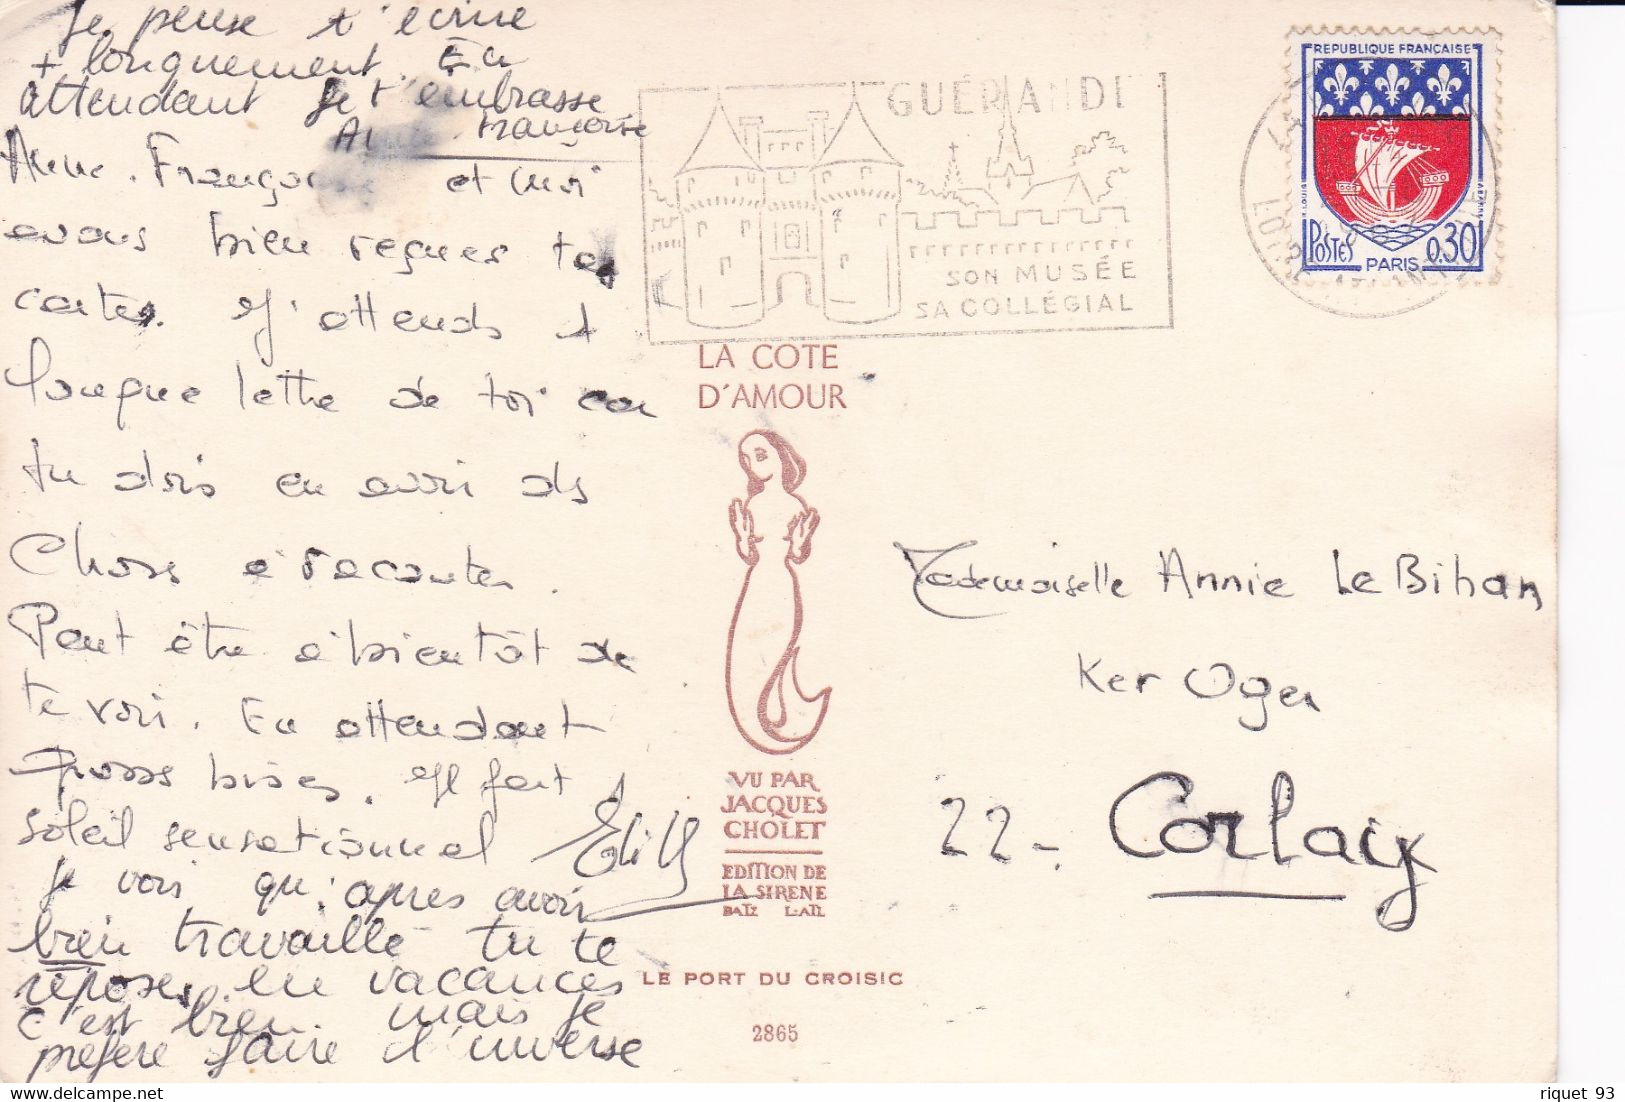 Je pense t'écrire
+ longuement En
attendant je t'embrasse
Françoise
Anne. Françoise et moi
avons bien reçues tes
cartes. J'attends 1
longue lettre de toi car
tu dois en avoir ds
choses à raconter.
Peut être à bientôt de
te voir. En attendant
grosss bises. Il fait 1
soleil sensationnel
Edith
Je vois qu'après avoir
bien travaillé tu te
reposes en vacances
c'est bien mais je
préfère faire l'inverse
GUÉRANDE
SON MUSÉE
SA COLLÉGIAL
REPUBLIQUE FRANÇAISE
POSTES
0,30
PARIS
LA COTE
D'AMOUR
VU PAR
JACQUES
CHOLET
EDITION DE
LA SIRENE
BATZ L-ATL
LE PORT DU CROISIC
2865
Mademoiselle Annie Le Bihan
Ker Oger
22- Corlay
riquet 93